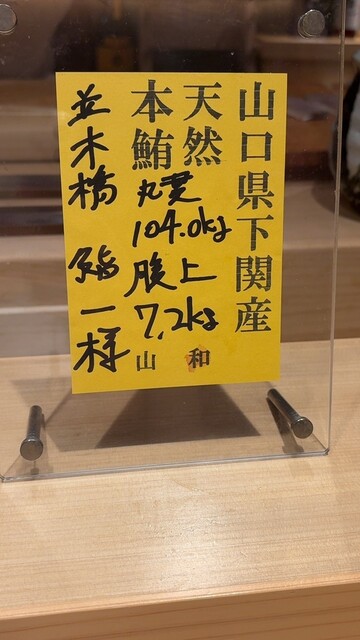 山口県下関産
天然
本鮪
丸貫
104.0kg
腹上
7.2kg
山和
並木橋 鮨一様